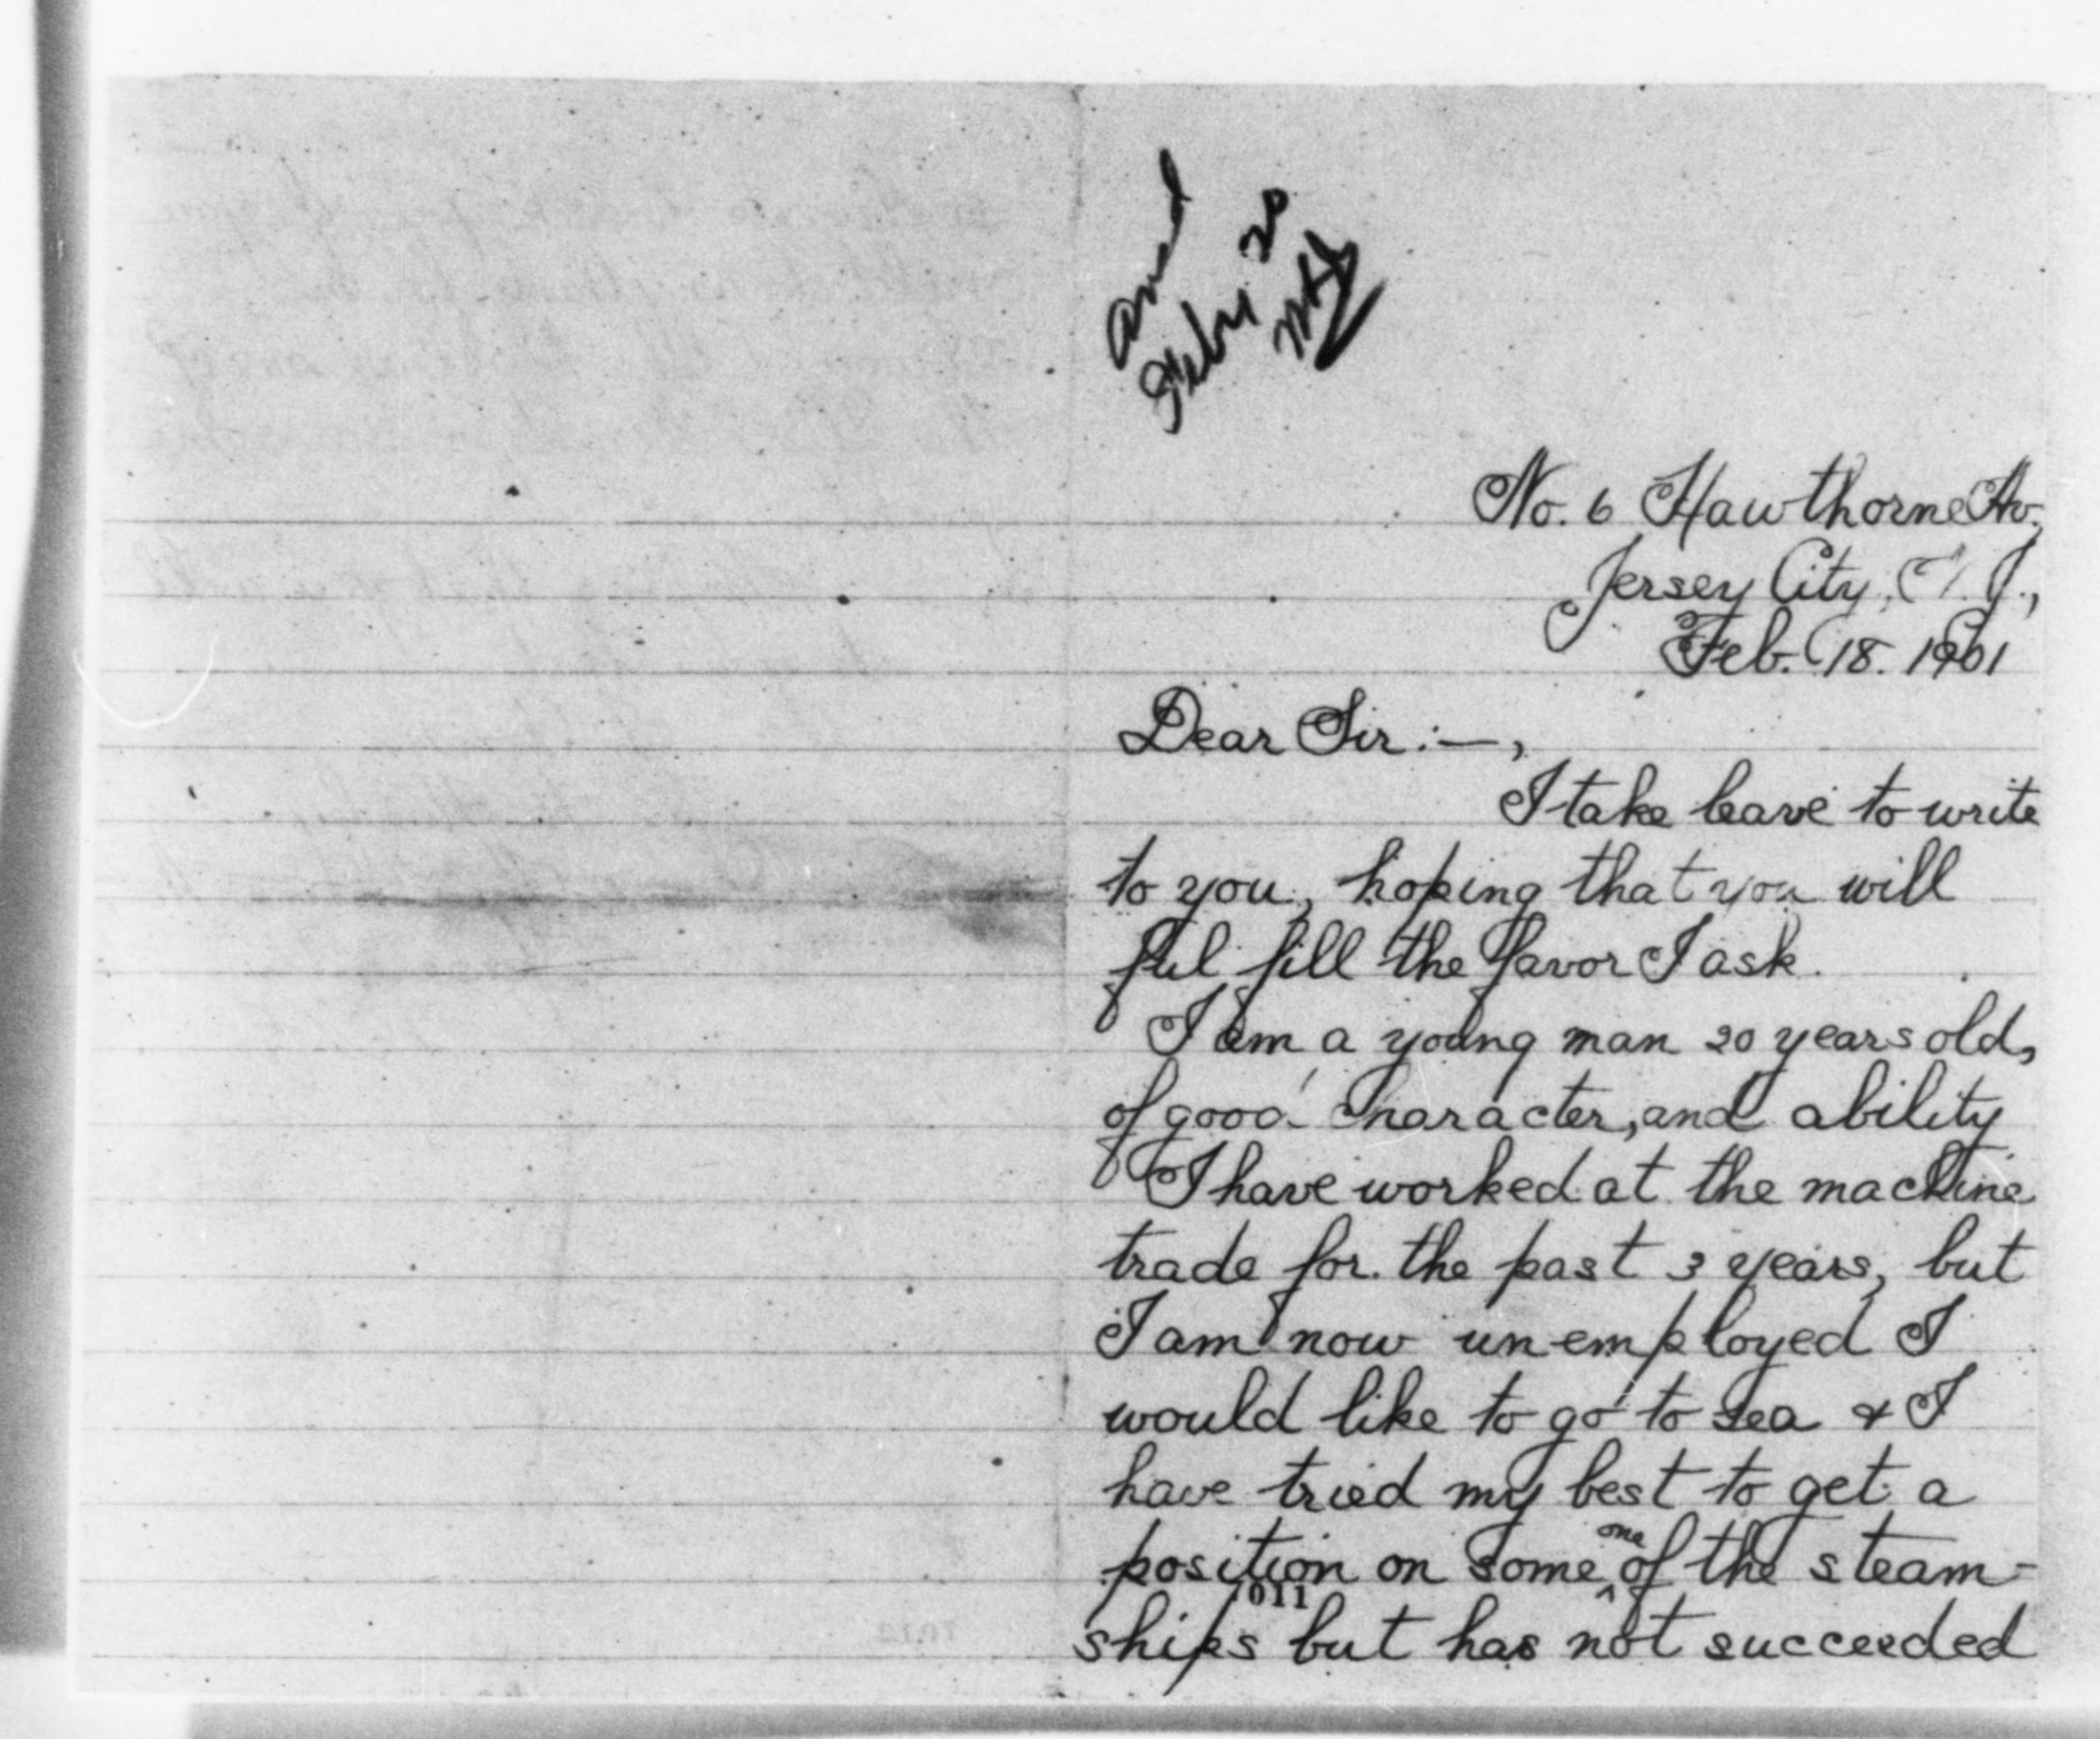 Febry 20
No. 6 Hawthorne Av,
Jersey City, N. J.,
Feb. 18. 1901
Dear Sir:—,
I take leave to write
to you, hoping that you will
ful fill the favor I ask.
I am a young man 20 years old,
of good character, and ability
I have worked at the machine
trade for the past 3 years, but
I am now un-employed I
would like to go to sea & I
have tried my best to get a
position on some one of the steam-
ships but has not succeeded